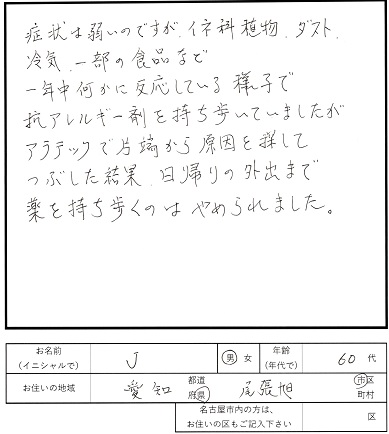 症状は弱いのですが、イネ科植物、ダスト、
冷気、一部の食品など
一年中何かに反応している様子で
抗アレルギー剤を持ち歩いていましたが
アラテックで片端から原因を探して
つぶした結果、日帰りの外出まで
薬を持ち歩くのはやめられました。
お名前
(イニシャルで)
J
男 女
年齢
(年代で)
60 代
お住いの地域
愛知
都道
府県
尾張旭
市区
町村
名古屋市内の方は、
お住いの区もご記入下さい
区